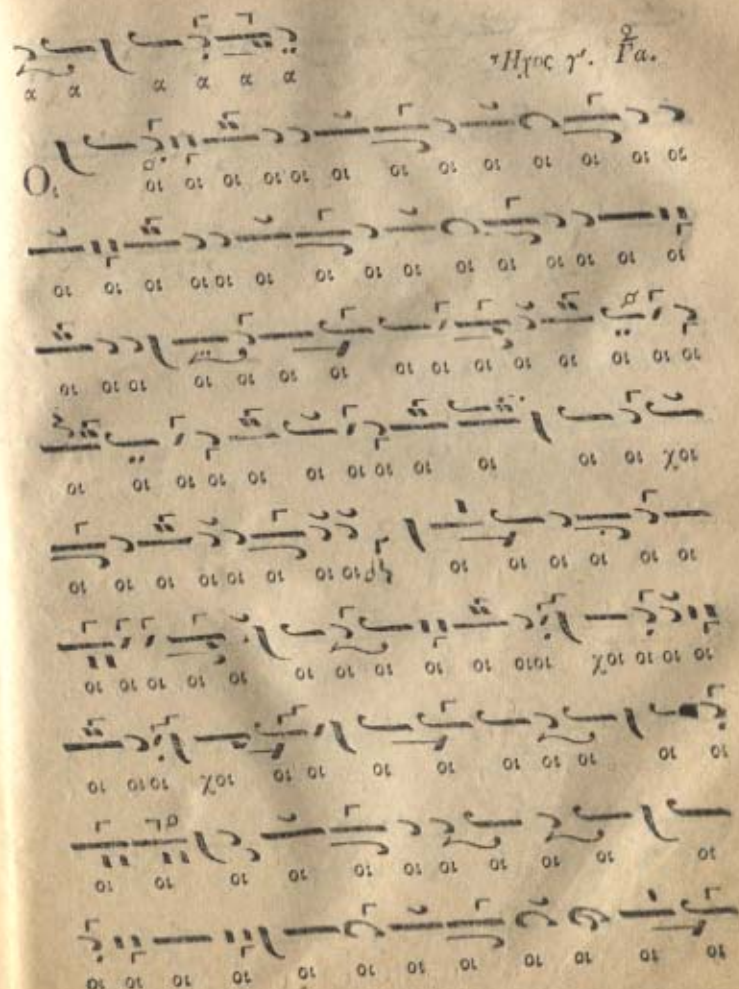 α α α α α α Ἦχος γʹ. Γα.
Ο, οι οι οι οι οι οι οι οι οι οι οι οι οι
οι οι οι οι οι οι οι οι οι οι οι οι οι οι οι
οι οι οι οι οι οι οι οι οι οι οι οι οι οι οι
οι οι οι οι οι οι οι οι οι οι οι οι χοι
οι οι οι οι οι οι οι οι οι οι οι οι οι οι
οι οι οι οι οι οι οι οι οι οι οι οι χοι οι οι οι
οι οι οι χοι οι οι οι οι οι οι οι οι οι
οι οι οι οι οι οι οι οι οι οι οι
οι οι οι οι οι οι οι οι οι οι οι οι